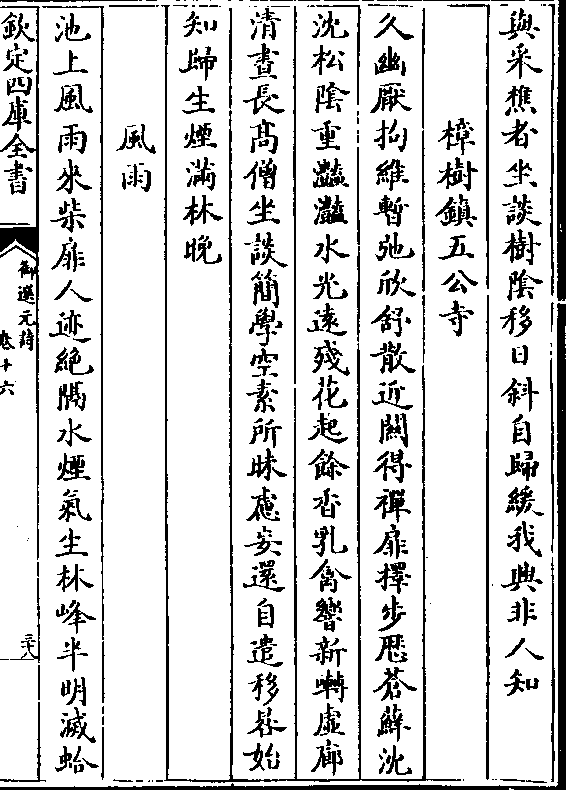 與采樵者坐談樹陰移日斜自歸緩我興非人知
樟樹鎮五公寺
久幽厭拘維暫弛欣舒散近關得禪扉擇步歴蒼蘚沈
沈松陰重灎灎水光逺殘花起餘香乳禽響新囀虛廊
清晝長髙僧坐談簡學空素所昧慮妄還自遣移晷始
知歸生煙滿林晚
風雨
池上風雨來柴扉人迹絶隔水煙氣生林峰半明滅蛤
欽定四庫全書
御選元詩
卷十六
三十八